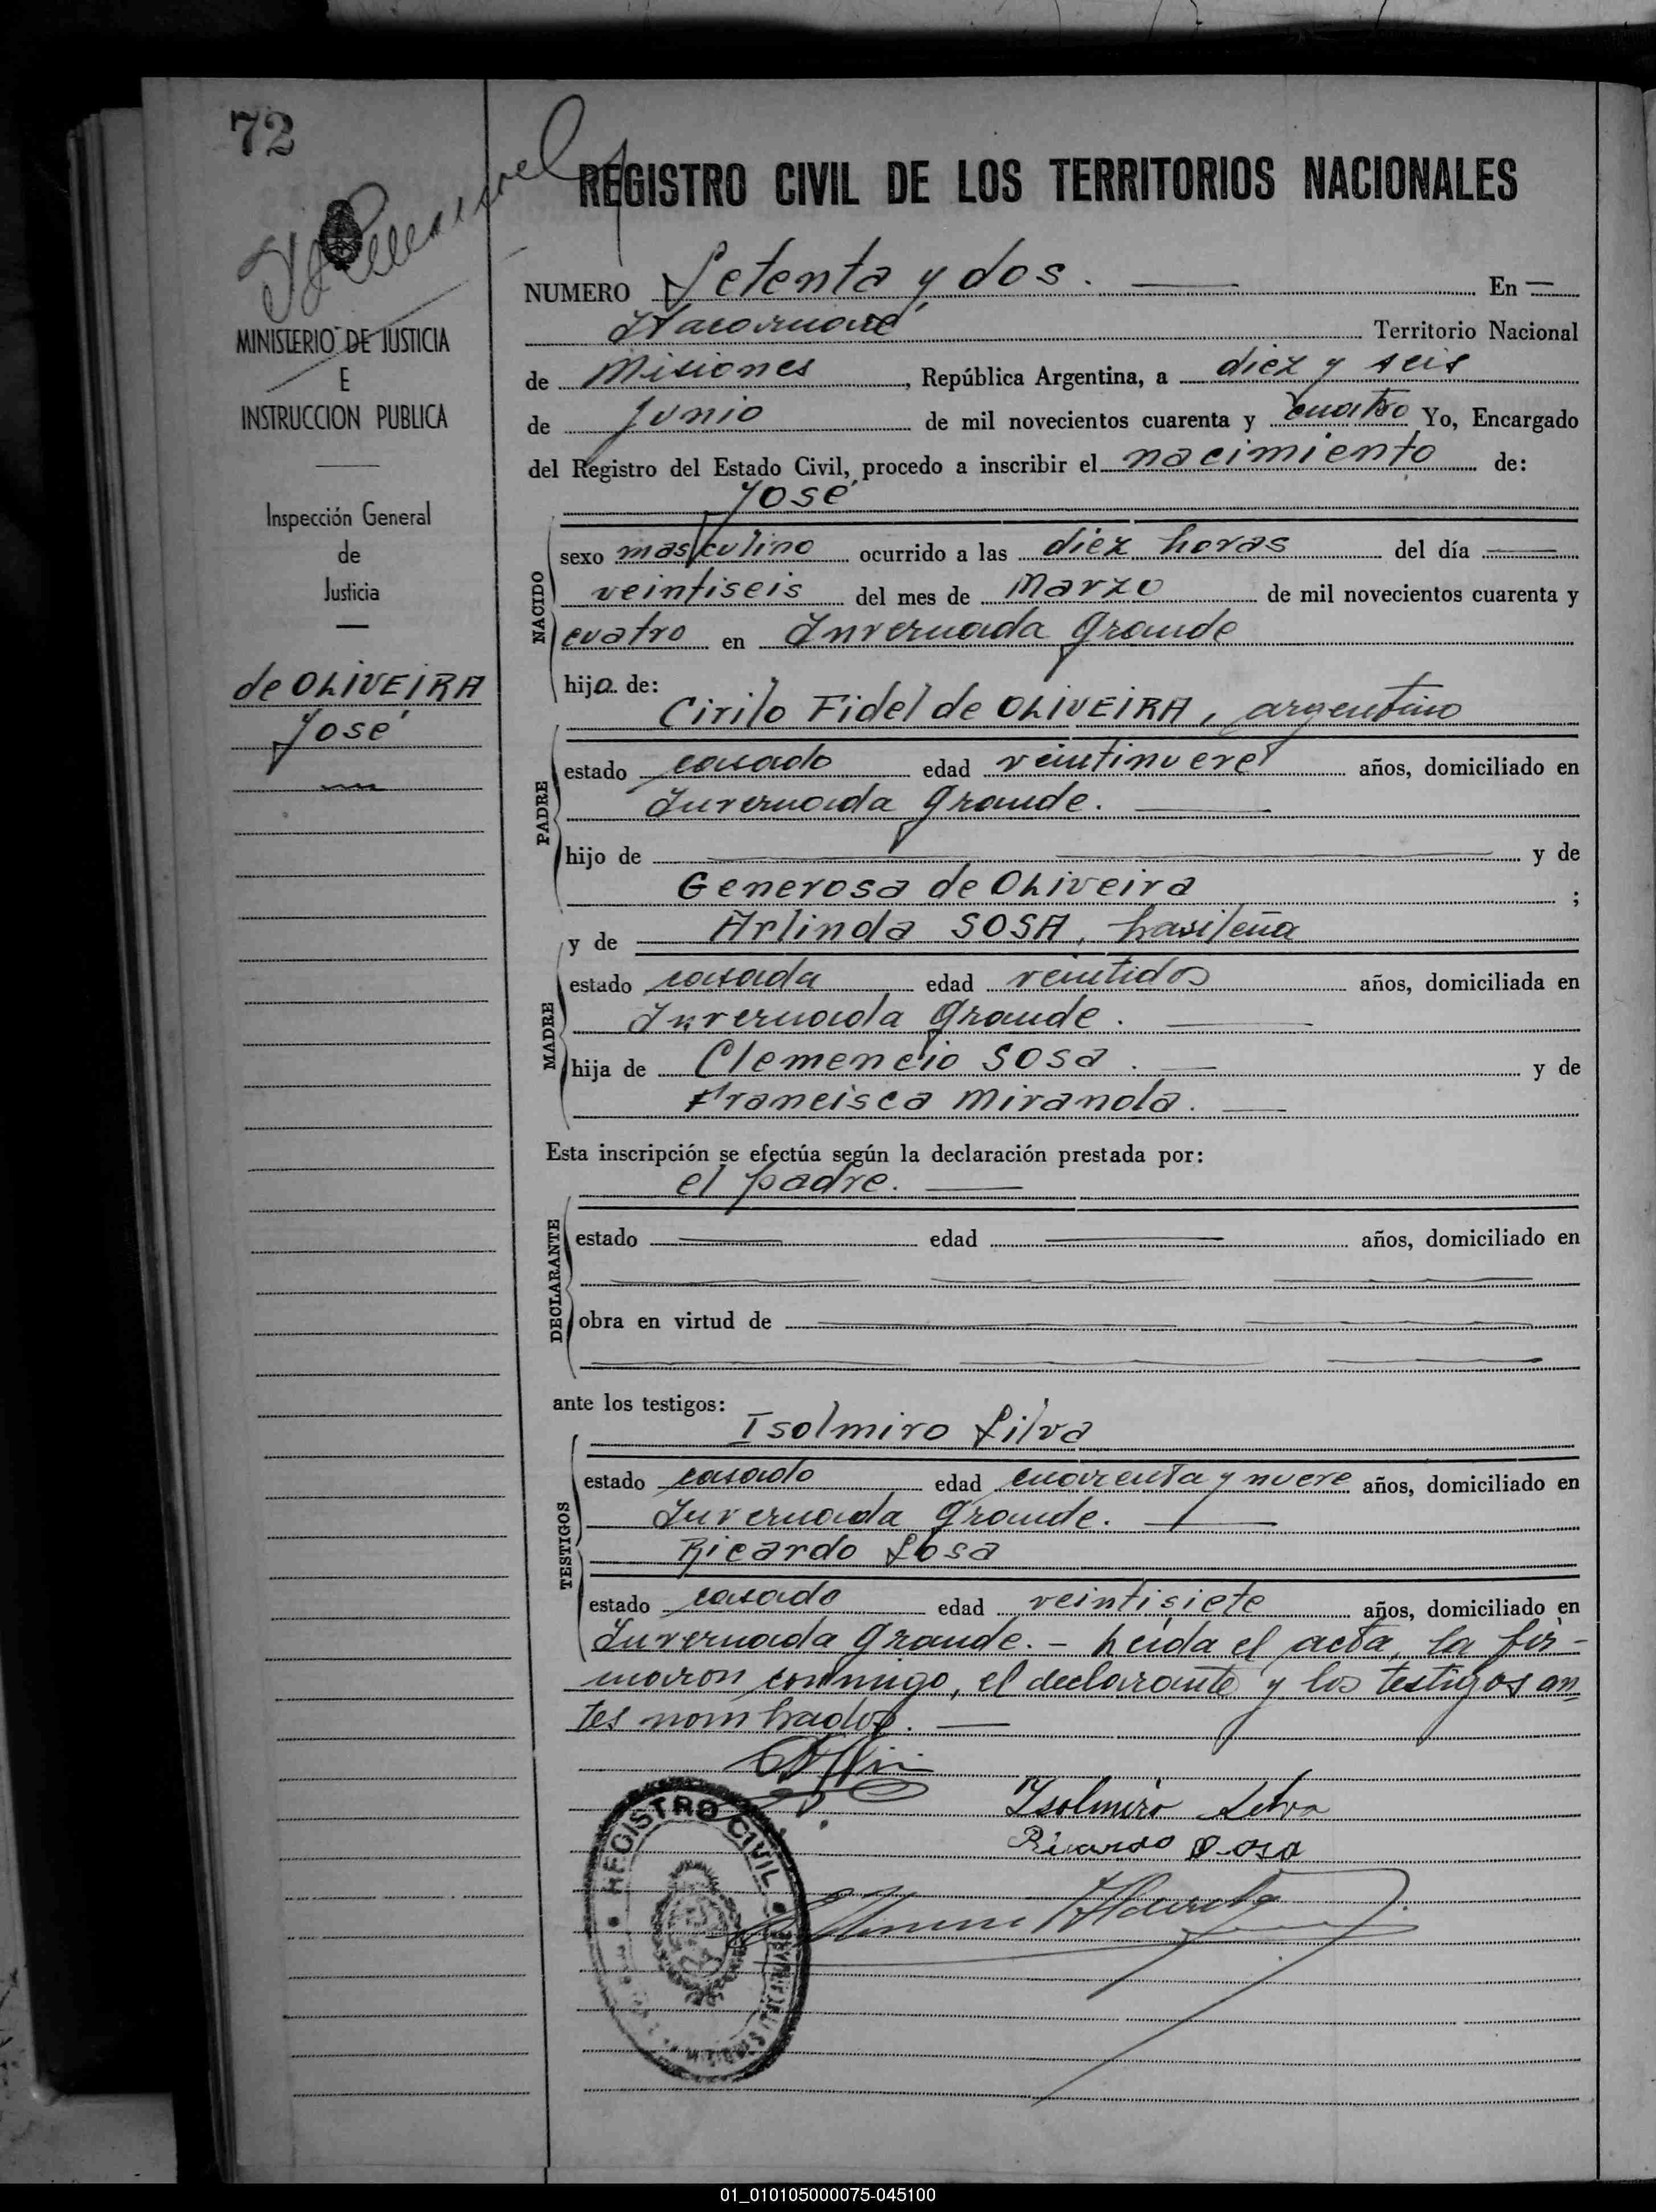 72
REGISTRO CIVIL DE LOS TERRITORIOS NACIONALES
MINISTERIO DE JUSTICIA
E
INSTRUCCION PUBLICA
Inspección General
de
Justicia
de OLIVEIRA
José
NUMERO Setenta y dos. En
Itacaruaré Territorio Nacional
de Misiones, República Argentina, a diez y seis
de Junio de mil novecientos cuarenta y cuatro Yo, Encargado
del Registro del Estado Civil, procedo a inscribir el nacimiento de:
José
NACIDO
sexo masculino ocurrido a las diez horas del día
veintiseis del mes de Marzo de mil novecientos cuarenta y
cuatro en Invernada Grande
hijo de:
Cirilo Fidel de OLIVEIRA, argentino
PADRE
estado casado edad veintinueve años, domiciliado en
Invernada Grande.
hijo de y de
Generosa de Oliveira ;
y de Arlinda SOSA, brasileña
MADRE
estado casada edad veintidos años, domiciliada en
Invernada Grande.
hija de Clemencio Sosa. y de
Francisca Miranda.
Esta inscripción se efectúa según la declaración prestada por:
el padre.
DECLARANTE
estado edad años, domiciliado en
obra en virtud de
ante los testigos:
Isolmiro Silva
TESTIGOS
estado casado edad cuarenta y nueve años, domiciliado en
Invernada Grande.
Ricardo Sosa
estado casado edad veintisiete años, domiciliado en
Invernada Grande. - Leída el acta, la fir-
maron conmigo, el declarante y los testigos an
tes nombrados.
Isolmiro Selva
Ricardo Sosa
REGISTRO CIVIL
01_010105000075-045100